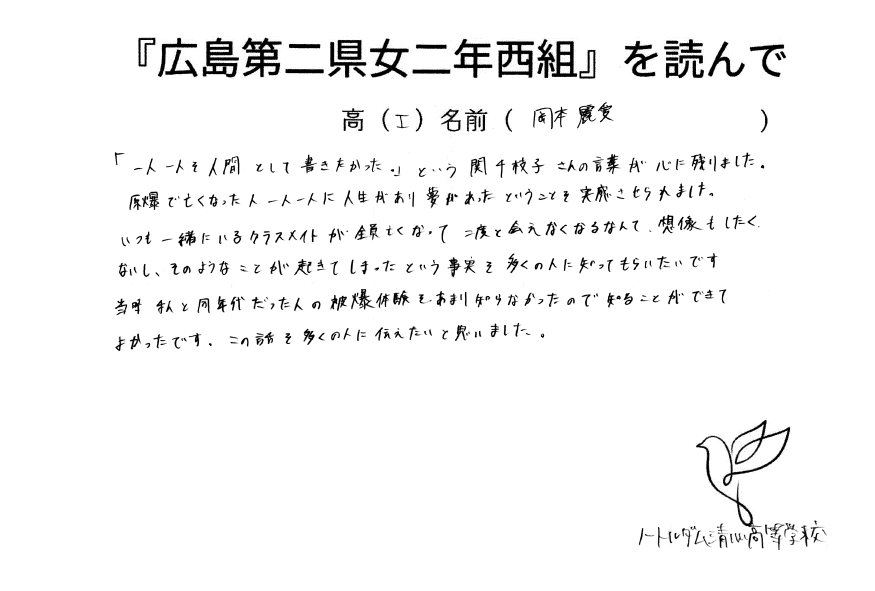 『広島第二県女二年西組』を読んで
高（I）名前（ 岡本麗愛 ）
「一人一人を人間として書きたかった。」という関千枝子さんの言葉が心に残りました。
原爆で亡くなった人一人一人に人生があり夢があったということを実感させられました。
いつも一緒にいるクラスメイトが全員亡くなって二度と会えなくなるなんて、想像もしたく
ないし、そのようなことが起きてしまったという事実を多くの人に知ってもらいたいです
当時私と同年代だった人の被爆体験をあまり知らなかったので知ることができて
よかったです、この話を多くの人に伝えたいと思いました。
ノートルダム清心高等学校